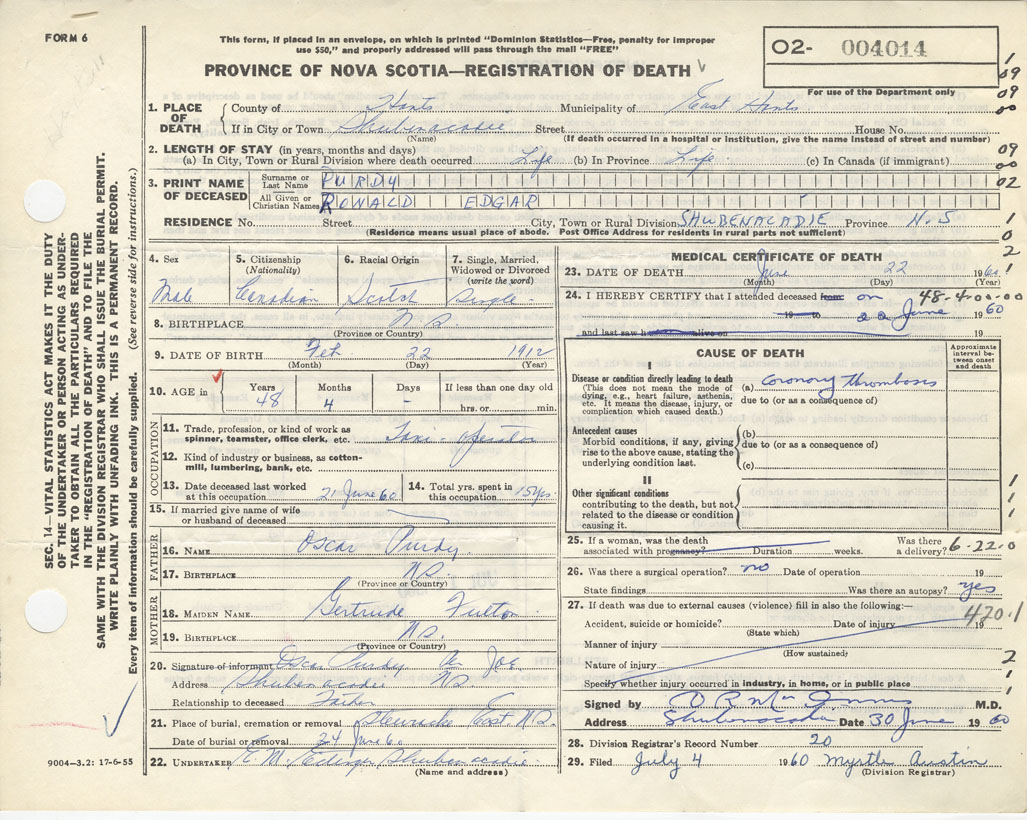 FORM 6
This form, if placed in an envelope, on which is printed "Dominion Statistics—Free, penalty for improper
use $50," and properly addressed will pass through the mail "FREE"
PROVINCE OF NOVA SCOTIA—REGISTRATION OF DEATH
O2- 004014
For use of the Department only
1. PLACE OF DEATH { County of Hants Municipality of East Hants
If in City or Town Shubenacadie Street House No.
(Name) (If death occurred in a hospital or institution, give the name instead of street and number)
2. LENGTH OF STAY (in years, months and days)
(a) In City, Town or Rural Division where death occurred Life (b) In Province Life (c) In Canada (if immigrant)
3. PRINT NAME OF DECEASED { Surname or Last Name PURDY
All Given or Christian Names RONALD EDGAR
RESIDENCE No. Street City, Town or Rural Division SHUBENACADIE Province N.S
(Residence means usual place of abode. Post Office Address for residents in rural parts not sufficient)
4. Sex Male
5. Citizenship (Nationality) Canadian
6. Racial Origin Scotch
7. Single, Married, Widowed or Divorced (write the word) Single
8. BIRTHPLACE N S
(Province or Country)
9. DATE OF BIRTH Feb. 22 1912
(Month) (Day) (Year)
10. AGE in Years 48 Months 4 Days - If less than one day old
hrs. or min.
OCCUPATION
11. Trade, profession, or kind of work as
spinner, teamster, office clerk, etc. Taxi - operator
12. Kind of industry or business, as cotton-
mill, lumbering, bank, etc.
13. Date deceased last worked
at this occupation 21 June 60
14. Total yrs. spent in
this occupation 15 yrs.
15. If married give name of wife
or husband of deceased
FATHER
16. NAME Oscar Purdy
17. BIRTHPLACE N S
(Province or Country)
MOTHER
18. MAIDEN NAME Gertrude Fulton
19. BIRTHPLACE N S.
(Province or Country)
20. Signature of informant Oscar Purdy
Address Shubenacadie N S
Relationship to deceased Father
21. Place of burial, cremation or removal East N.S.
Date of burial or removal 24 June 60
22. UNDERTAKER E. M. Shubenacadie
(Name and address)
MEDICAL CERTIFICATE OF DEATH
23. DATE OF DEATH June 22 1960
(Month) (Day) (Year)
24. I HEREBY CERTIFY that I attended deceased from on 48-4-00-00
19 to 22 June 1960
and last saw alive on 19
CAUSE OF DEATH
Approximate interval between onset and death
I
Disease or condition directly leading to death
(This does not mean the mode of
dying, e.g., heart failure, asthenia,
etc. It means the disease, injury, or
complication which caused death.)
(a) Coronary thrombosis
due to (or as a consequence of)
Antecedent causes
Morbid conditions, if any, giving
rise to the above cause, stating the
underlying condition last.
(b)
due to (or as a consequence of)
(c)
II
Other significant conditions
contributing to the death, but not
related to the disease or condition
causing it.
25. If a woman, was the death
associated with pregnancy? Duration weeks. Was there
a delivery? 6-22-0
26. Was there a surgical operation? no Date of operation 19
State findings Was there an autopsy? yes
27. If death was due to external causes (violence) fill in also the following:—
Accident, suicide or homicide? Date of injury 19
420.1
(State which)
Manner of injury
(How sustained)
Nature of injury
Specify whether injury occurred in industry, in home, or in public place
Signed by M.D.
Address Shubenacadie Date 30 June 1960
28. Division Registrar's Record Number 20
29. Filed July 4 1960 Myrtle Austin
(Division Registrar)
1
09
09
00
09
00
02
1
0
2
1
1
1
1
2
1
1
SEC. 14—VITAL STATISTICS ACT MAKES IT THE DUTY
OF THE UNDERTAKER OR PERSON ACTING AS UNDER-
TAKER TO OBTAIN ALL THE PARTICULARS REQUIRED
IN THE "REGISTRATION OF DEATH" AND TO FILE THE
SAME WITH THE DIVISION REGISTRAR WHO SHALL ISSUE THE BURIAL PERMIT.
WRITE PLAINLY WITH UNFADING INK. THIS IS A PERMANENT RECORD.
Every item of information should be carefully supplied. (See reverse side for instructions.)
9004—3.2: 17-6-55